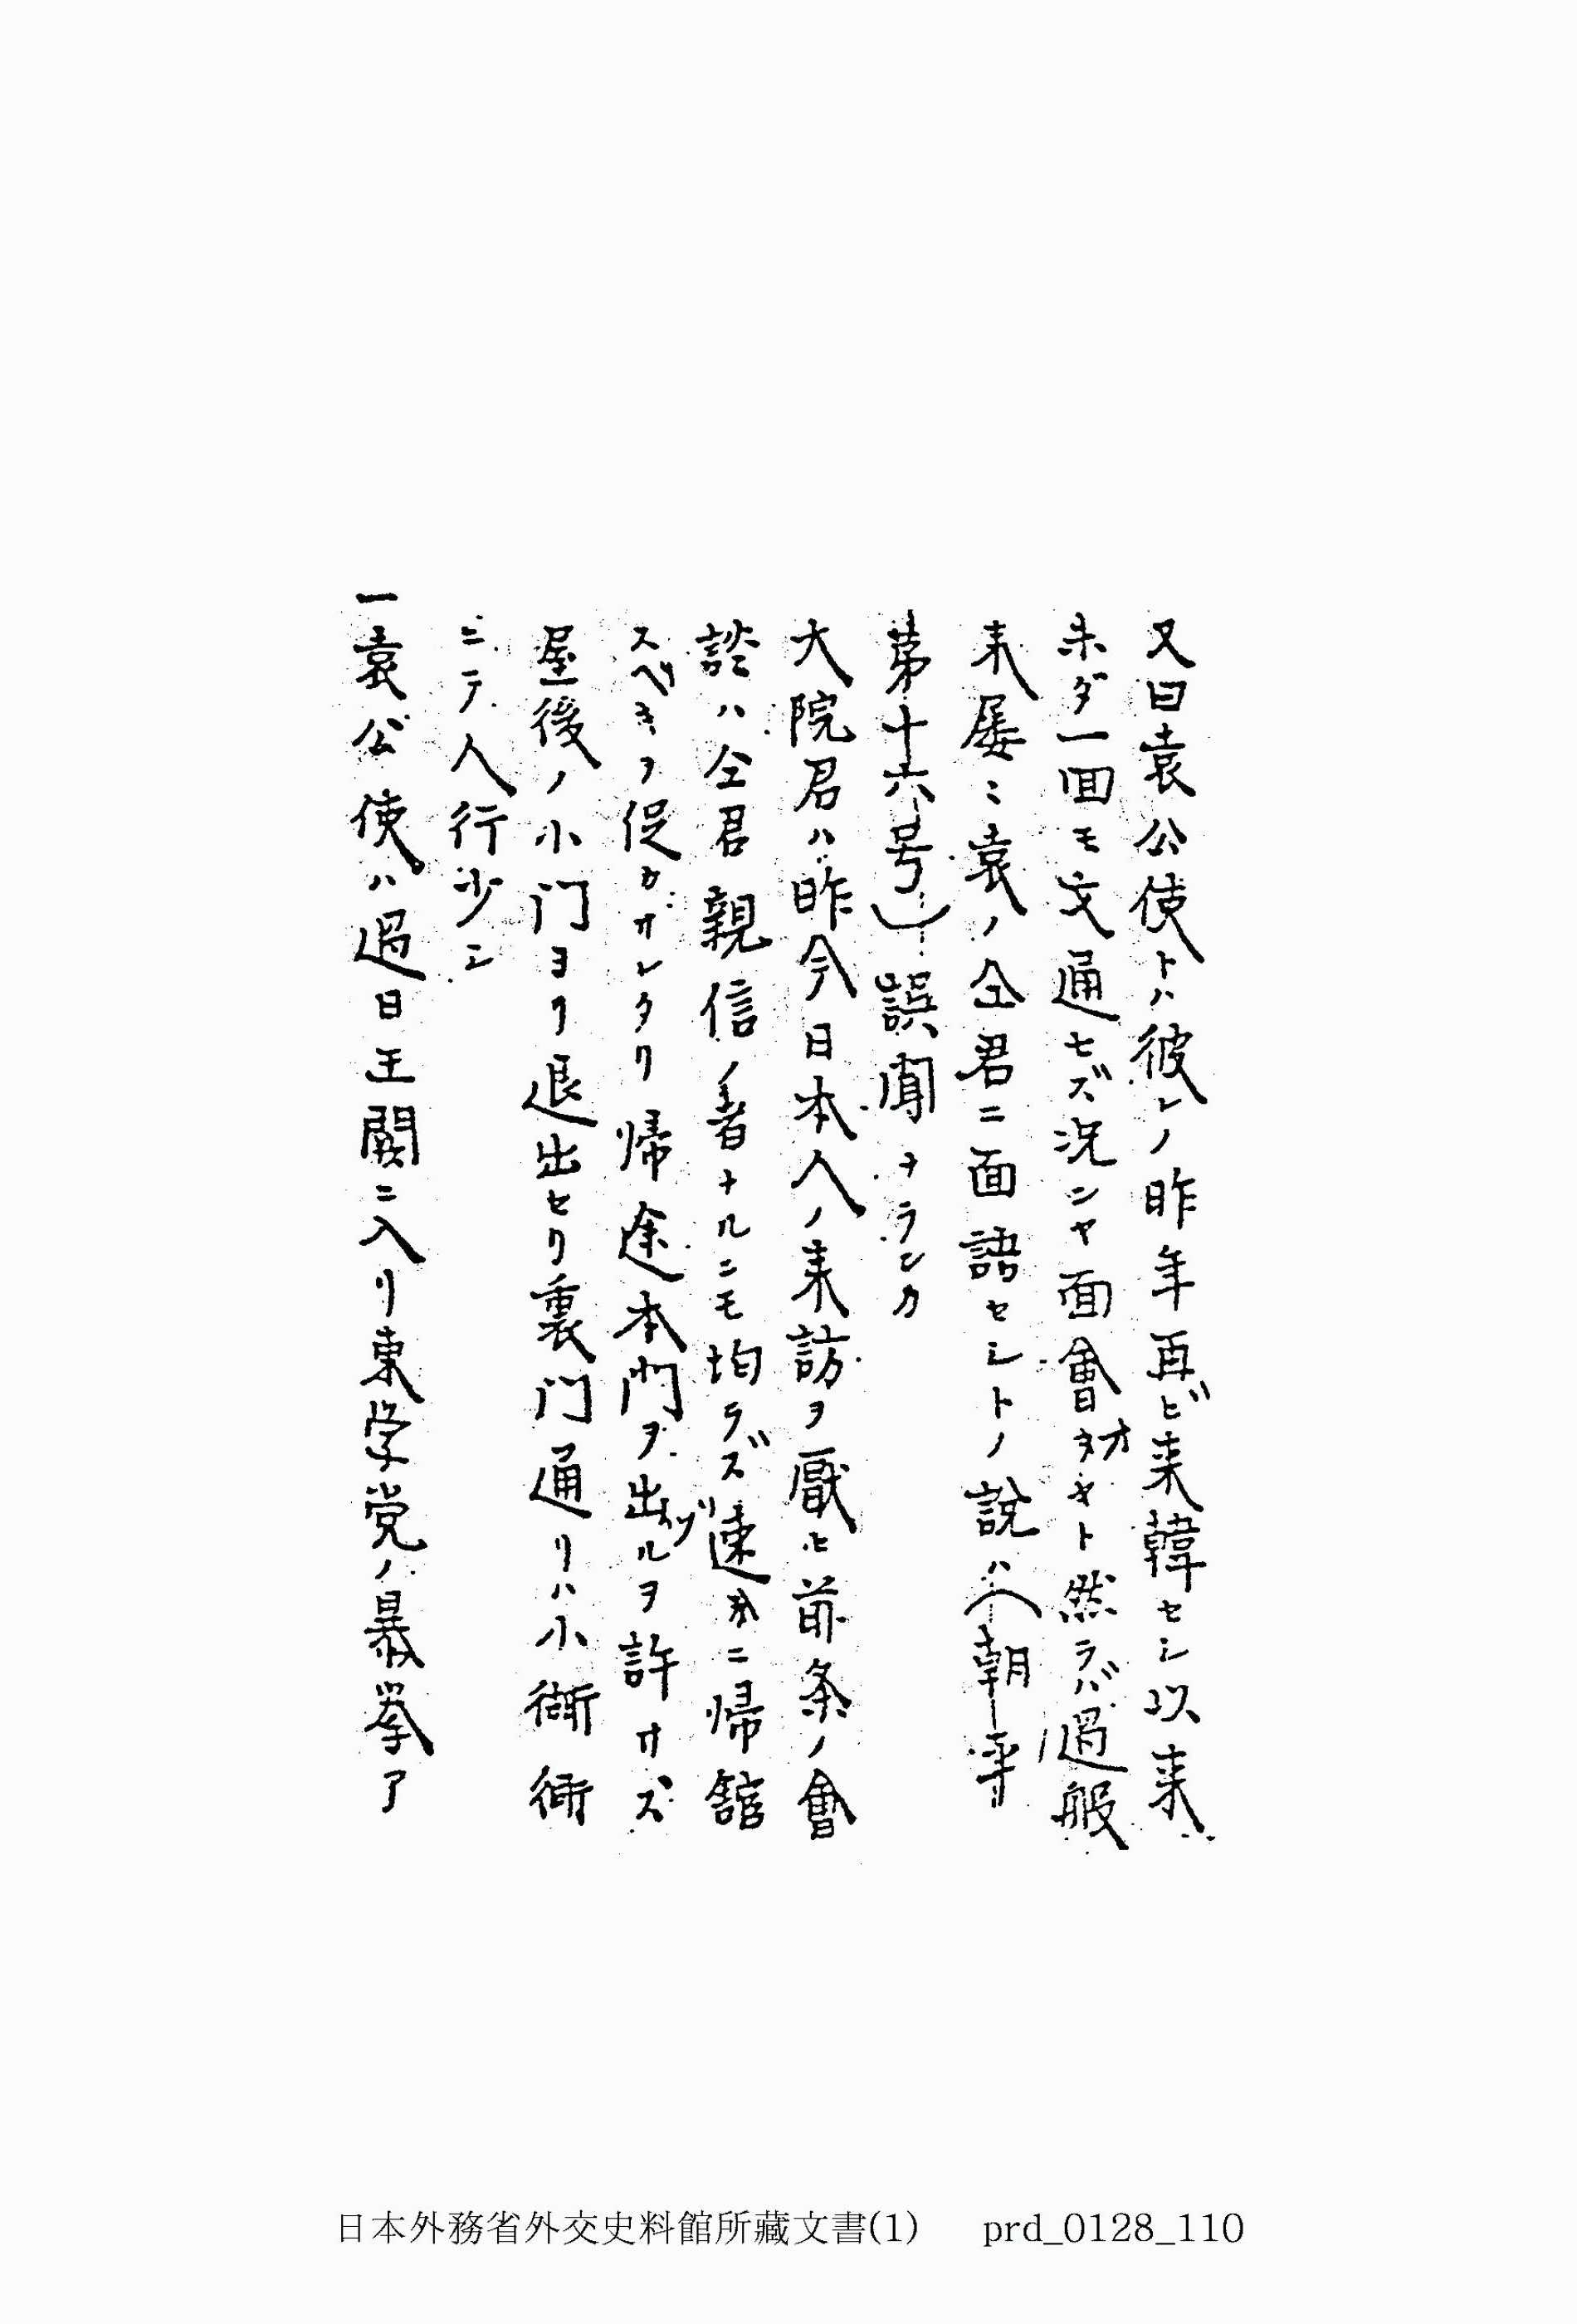 又曰袁公使トハ彼レノ昨年再ビ来韓セシ以来
未ダ一回モ文通セズ況ンヤ面會オヤト然ラバ過般
来屡ミ袁ノ仝君ニ面語セシトノ説ハ(朝
第十六号)誤聞ナランカ
大院君ハ昨今日本人ノ来訪ヲ厭ヒ前条ノ會
談ハ仝君親信ノ者ナルニモ拘ラズ速カニ帰舘
スベキヲ促カサレタリ帰途本門ヲ出ヅルヲ許サズ
屋後ノ小門ヨリ退出セリ裏門通リハ小衚衕
ニテ人行少シ
一袁公使ハ過日王闕ニ入リ東学党ノ暴挙了
日本外務省外交史料館所藏文書(1) prd_0128_110